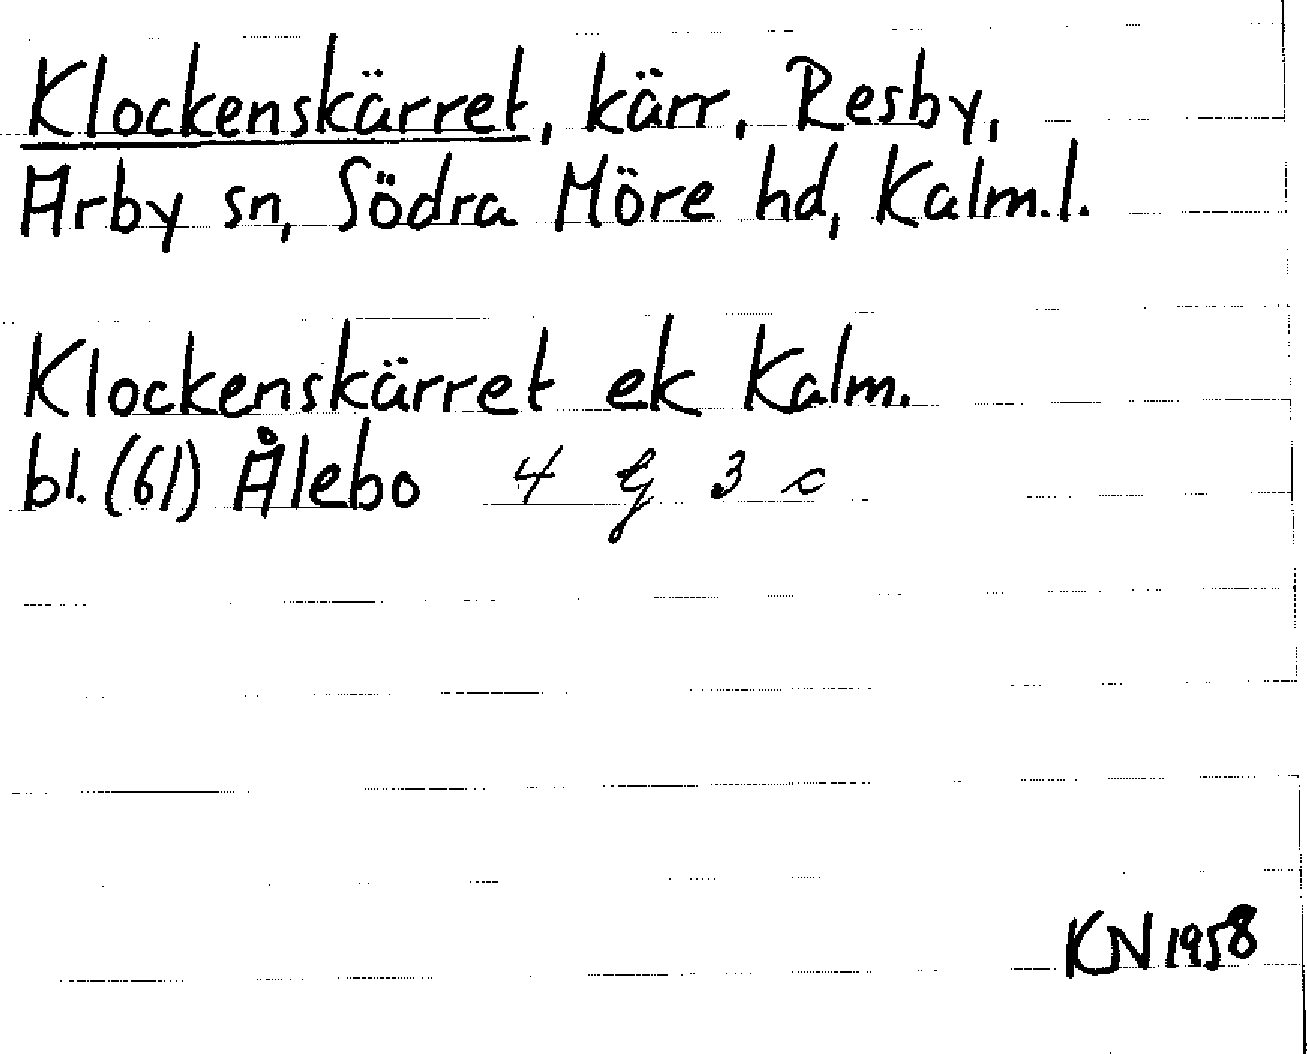 Klockenskärret, kärr, Resby,
Arby sn, Södra Möre hd, Kalm.l.
Klockenskärret ek Kalm.
bl. (61) Ålebo 4 G 3 c
KN 1958